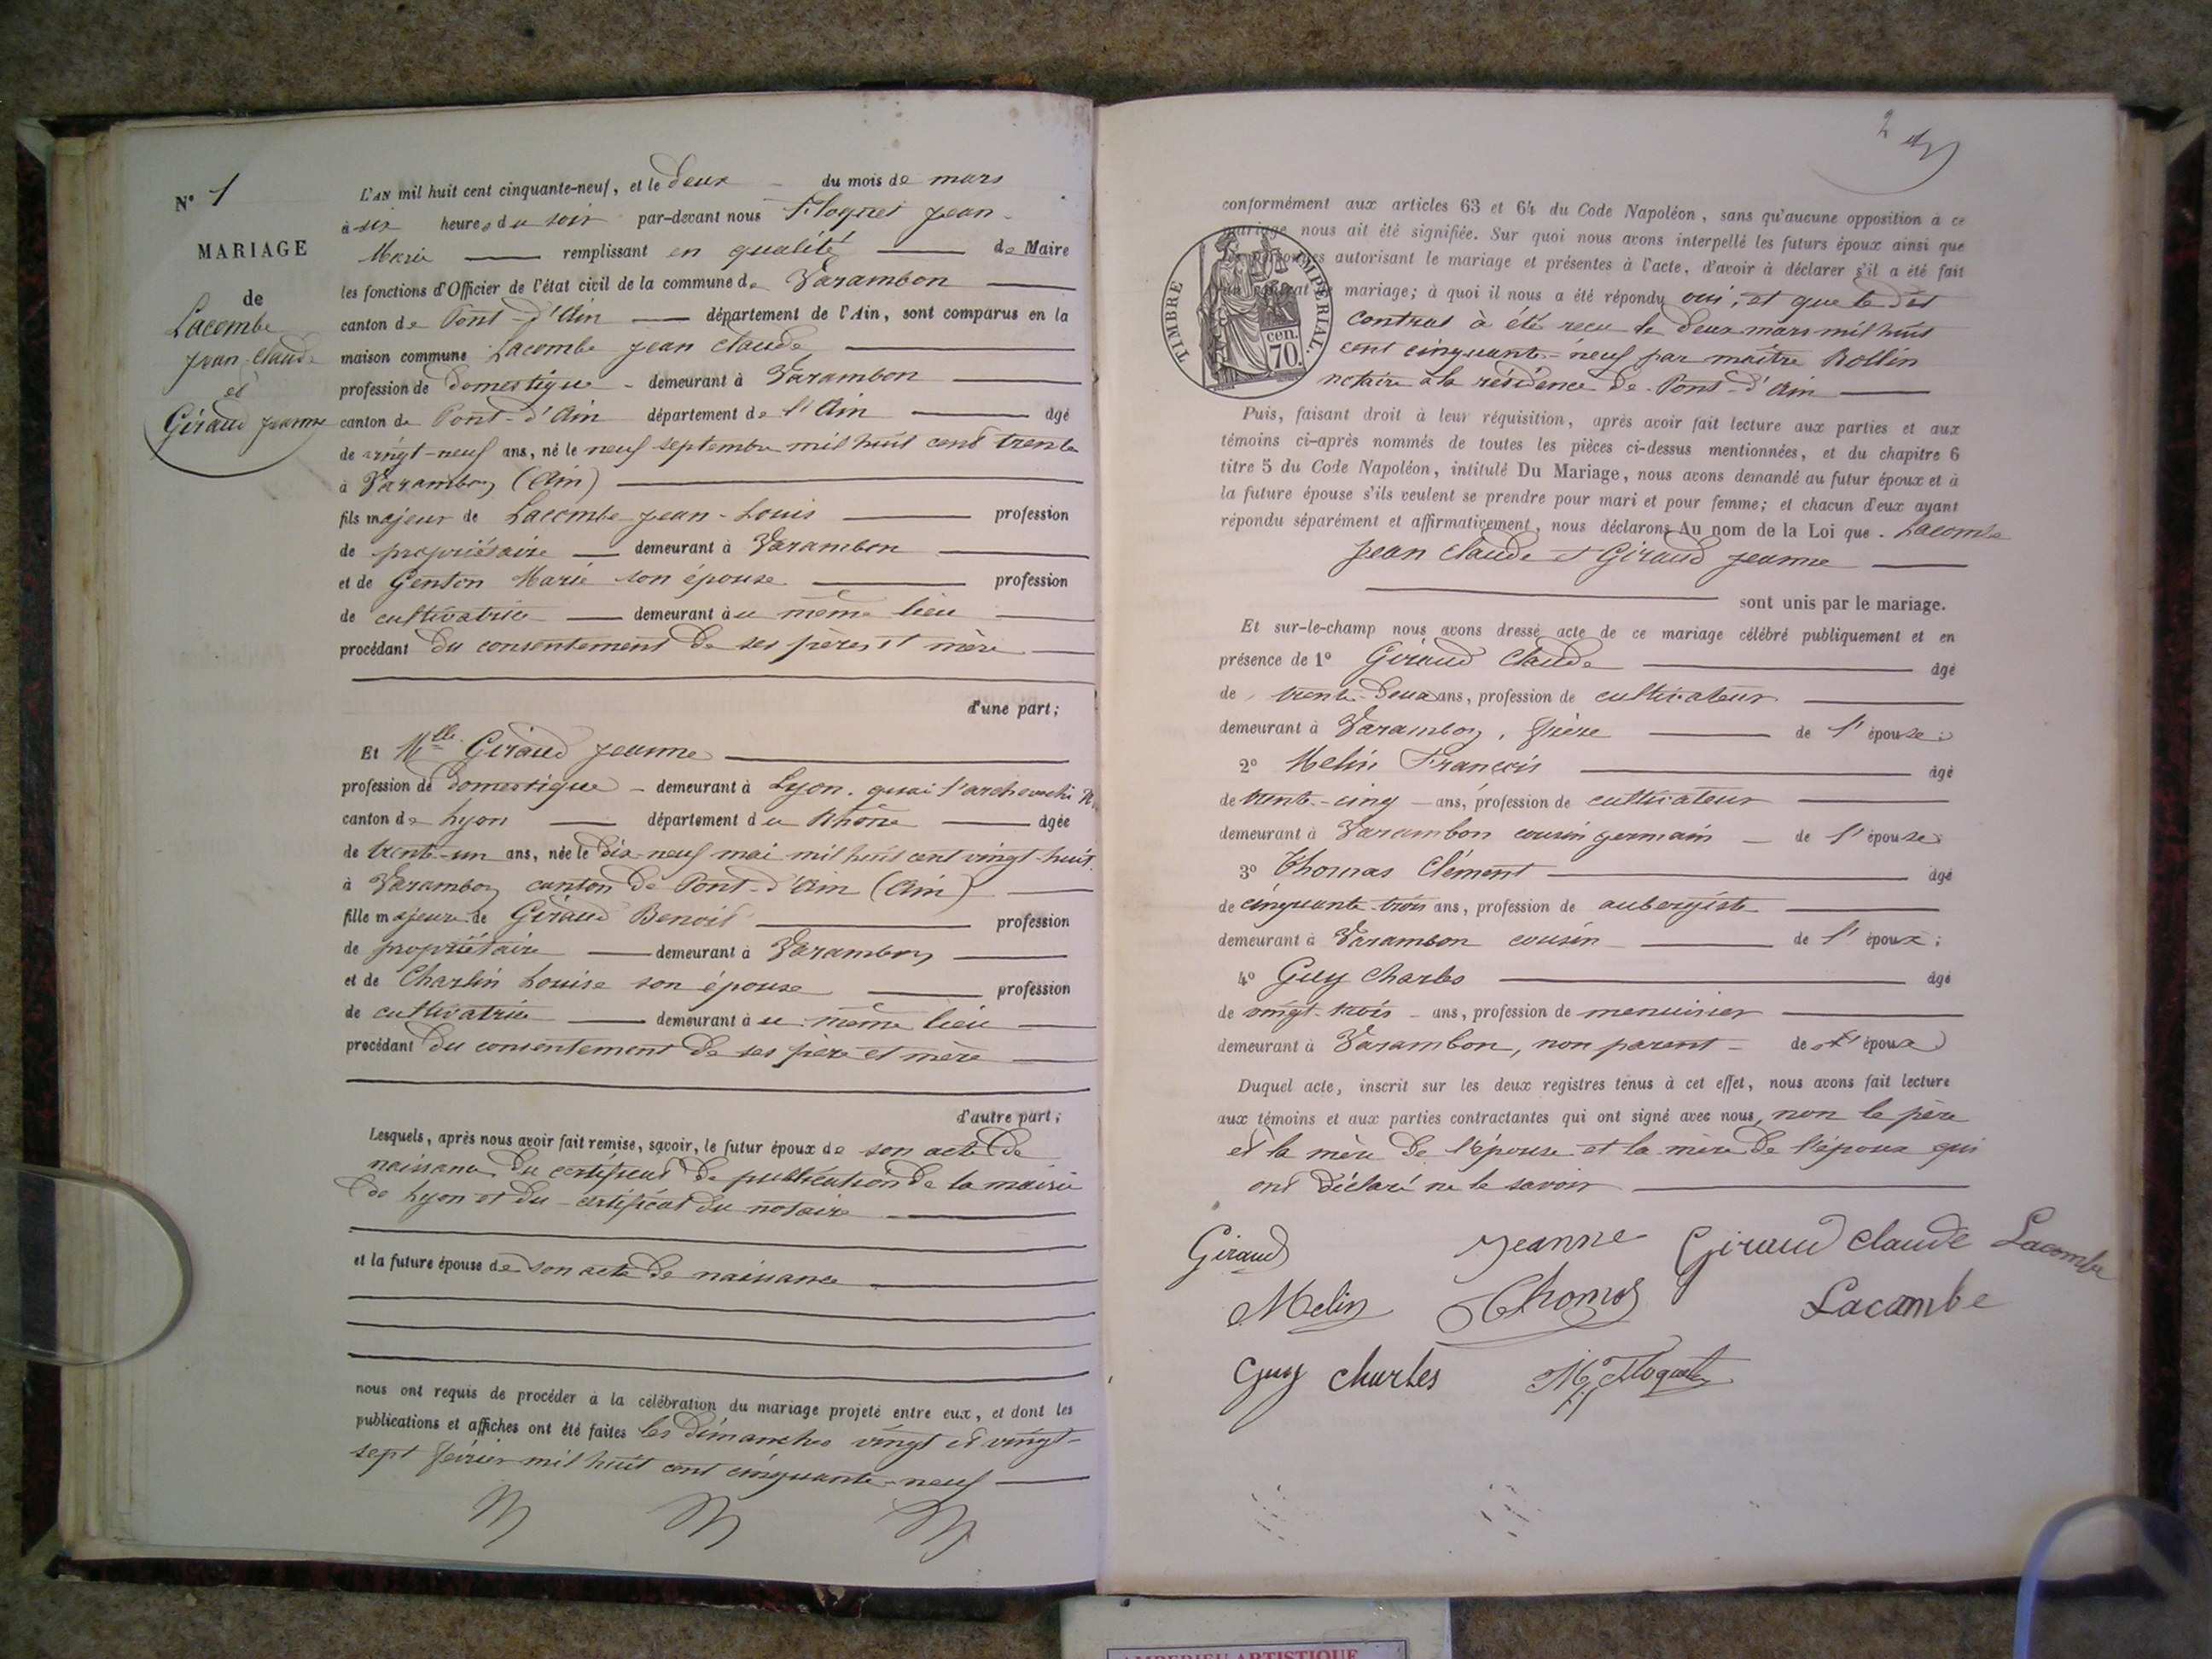 N° 1
MARIAGE
de
Lacombe
Jean Claude
et
Giraud Jeanne
L'AN mil huit cent cinquante-neuf, et le deux du mois de mars
à six heures du soir par-devant nous Floquet Jean-
Marie remplissant en qualité de Maire
les fonctions d'Officier de l'état civil de la commune de Varambon
canton de Pont-d'Ain département de l'Ain, sont comparus en la
maison commune Lacombe Jean Claude
profession de domestique - demeurant à Varambon
canton de Pont-d'Ain département de l'Ain âgé
de vingt-neuf ans, né le neuf septembre mil huit cent trente
à Varambon (Ain)
fils majeur de Lacombe Jean-Louis profession
de propriétaire demeurant à Varambon
et de Genton Marie son épouse profession
de cultivatrice demeurant au même lieu
procédant du consentement de ses père et mère
d'une part;
Et Mlle Giraud Jeanne
profession de domestique - demeurant à Lyon, quai l'archevêché
canton de Lyon département du Rhône âgée
de trente-un ans, née le dix-neuf mai mil huit cent vingt-huit
à Varambon canton de Pont-d'Ain (Ain)
fille majeure de Giraud Benoit profession
de propriétaire demeurant à Varambon
et de Charlin Louise son épouse profession
de cultivatrice demeurant au même lieu
procédant du consentement de ses père et mère
d'autre part;
Lesquels, après nous avoir fait remise, savoir, le futur époux de son acte de
naissance du certificat de publication de la mairie
de Lyon et du certificat du notaire
et la future épouse de son acte de naissance
nous ont requis de procéder à la célébration du mariage projeté entre eux, et dont les
publications et affiches ont été faites les dimanches vingt et vingt-
sept février mil huit cent cinquante-neuf
2
conformément aux articles 63 et 64 du Code Napoléon, sans qu'aucune opposition à ce
mariage nous ait été signifiée. Sur quoi nous avons interpellé les futurs époux ainsi que
les personnes autorisant le mariage et présentes à l'acte, d'avoir à déclarer s'il a été fait
un contrat de mariage; à quoi il nous a été répondu oui, et que le dit
contrat à été reçu le deux mars mil huit
cent cinquante-neuf par maître Rollin
notaire à la résidence de Pont-d'Ain
TIMBRE IMPERIAL.
cen.
70.
Puis, faisant droit à leur réquisition, après avoir fait lecture aux parties et aux
témoins ci-après nommés de toutes les pièces ci-dessus mentionnées, et du chapitre 6
titre 5 du Code Napoléon, intitulé Du Mariage, nous avons demandé au futur époux et à
la future épouse s'ils veulent se prendre pour mari et pour femme; et chacun d'eux ayant
répondu séparément et affirmativement, nous déclarons Au nom de la Loi que Lacombe
Jean Claude et Giraud Jeanne
sont unis par le mariage.
Et sur-le-champ nous avons dressé acte de ce mariage célébré publiquement et en
présence de 1° Giraud Claude âgé
de trente-deux ans, profession de cultivateur
demeurant à Varambon, frère de l'épouse;
2° Melin François âgé
de trente-cinq ans, profession de cultivateur
demeurant à Varambon cousin germain de l'épouse
3° Thomas Clément âgé
de cinquante-trois ans, profession de aubergiste
demeurant à Varambon cousin de l'époux;
4° Guy Charles âgé
de vingt-trois ans, profession de menuisier
demeurant à Varambon, non parent de l'époux
Duquel acte, inscrit sur les deux registres tenus à cet effet, nous avons fait lecture
aux témoins et aux parties contractantes qui ont signé avec nous, non le père
et la mère de l'épouse et la mère de l'époux qui
ont déclaré ne le savoir
Giraud Jeanne Giraud Claude Lacombe
Melin Thomas Lacombe
Guy Charles Floquet
AMBERIEU ARTISTIQUE